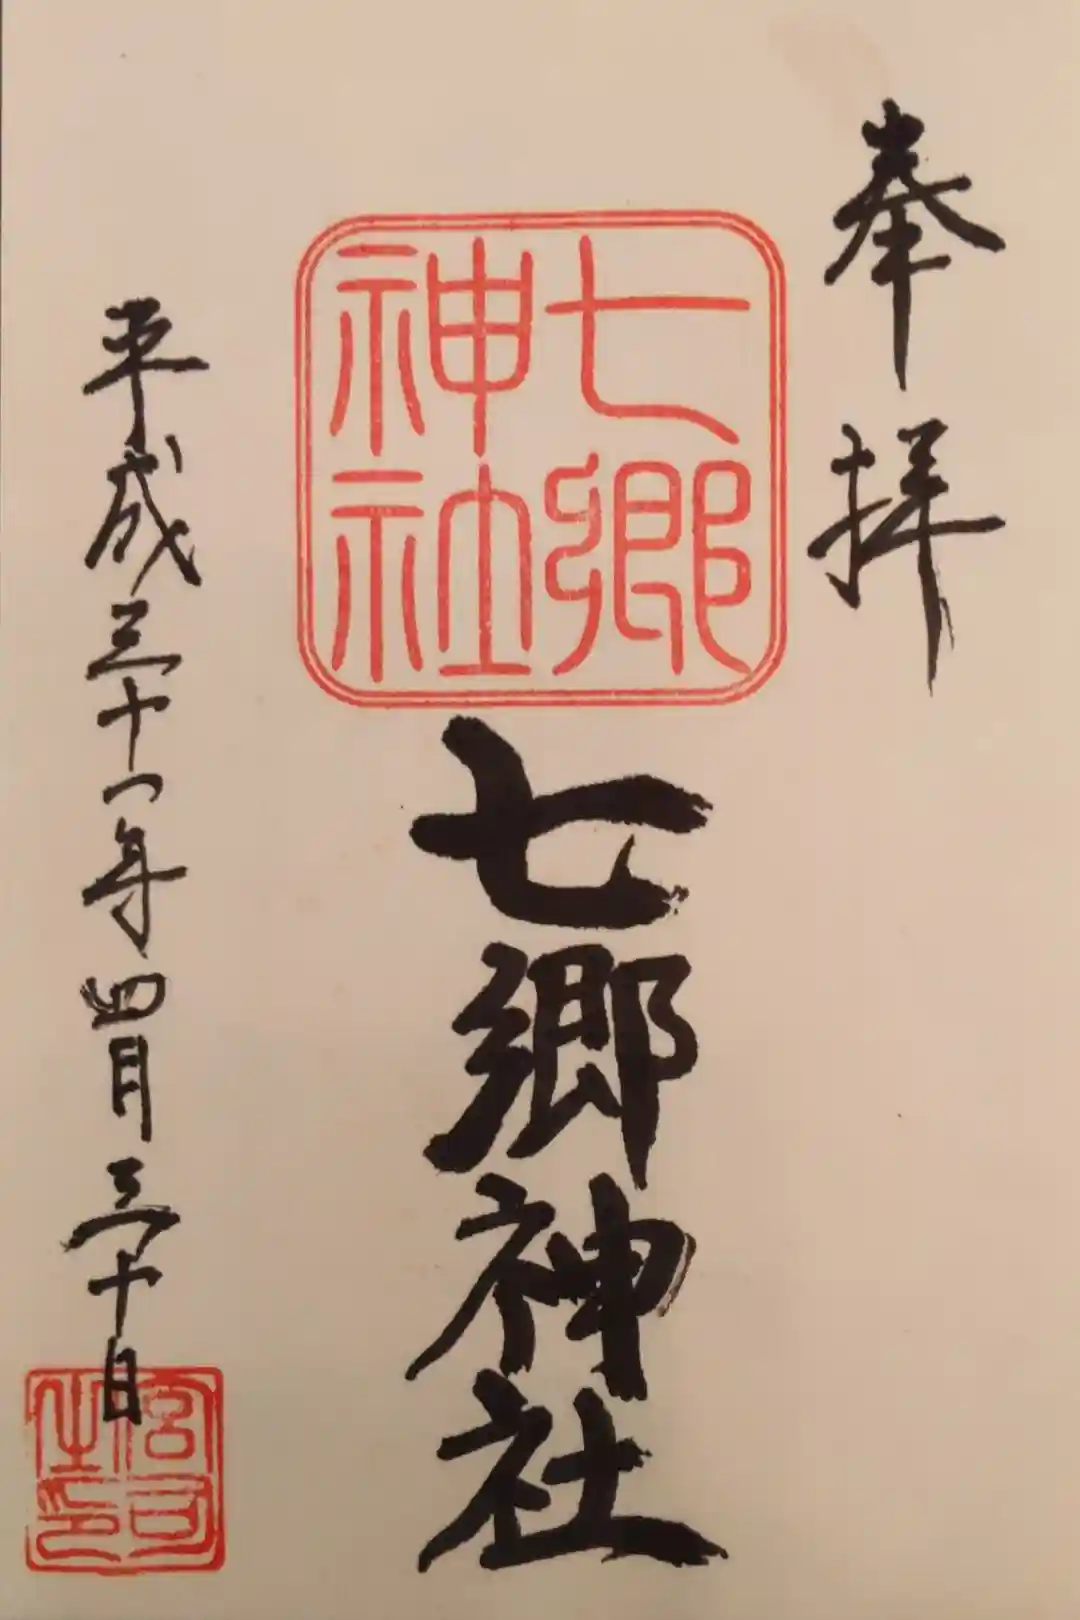 奉拝
七郷
神社
七郷神社
平成三十一年四月三十日
宮司
之印